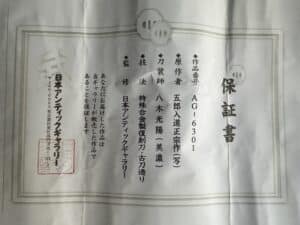 保証書
◆作品番号 AG-6301
◆原作者 五郎入道正宗作(写)
◆刀装師 八木光陽(美濃)
◆技法 特殊合金製復刻刀・古刀造り
◆監修 日本アンティックギャラリー
あなたにお届けした作品は
当ギャラリーが販売した作品で
あることを保証します。
日本アンティックギャラリー